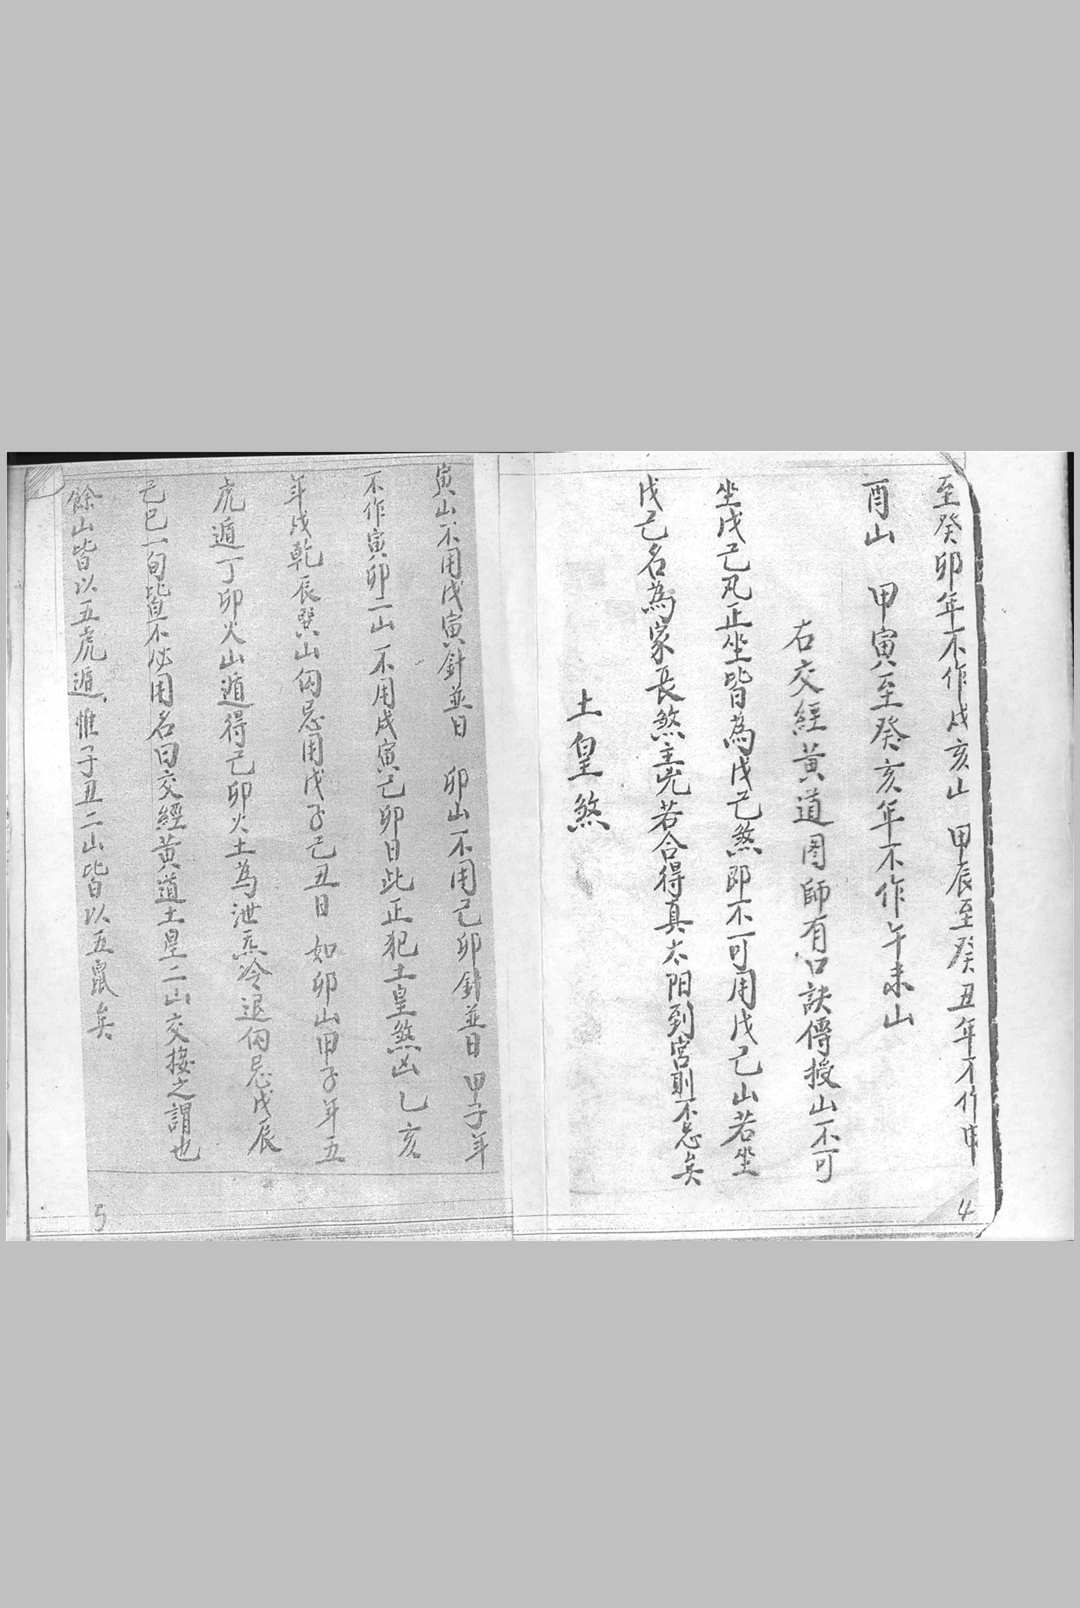 至癸卯年不作戌亥山 甲辰至癸丑年不作申
酉山 甲寅至癸亥年不作午未山
右交經黄道圖師有口訣傳授山不可
坐戊己凡正坐皆為戊己煞即不可用戊己山若坐
戊己名為家長煞主兇若合得真太陽到宮則不忌矣
土皇煞
4
寅山不用戊寅針並日 卯山不用己卯針並日 甲子年
不作寅卯二山不用戊寅己卯日此正犯土皇煞凶乙亥
年戌乾辰巽山仍忌用戊子己丑日 如卯山甲子年五
虎遁丁卯火山遁得己卯火土為泄炁冷退仍忌戊辰
己巳一旬皆不必用名曰交經黄道土皇二山交接之謂也
餘山皆以五虎遁惟子丑二山皆以五鼠矣
5